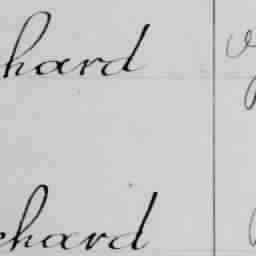 hard
chard